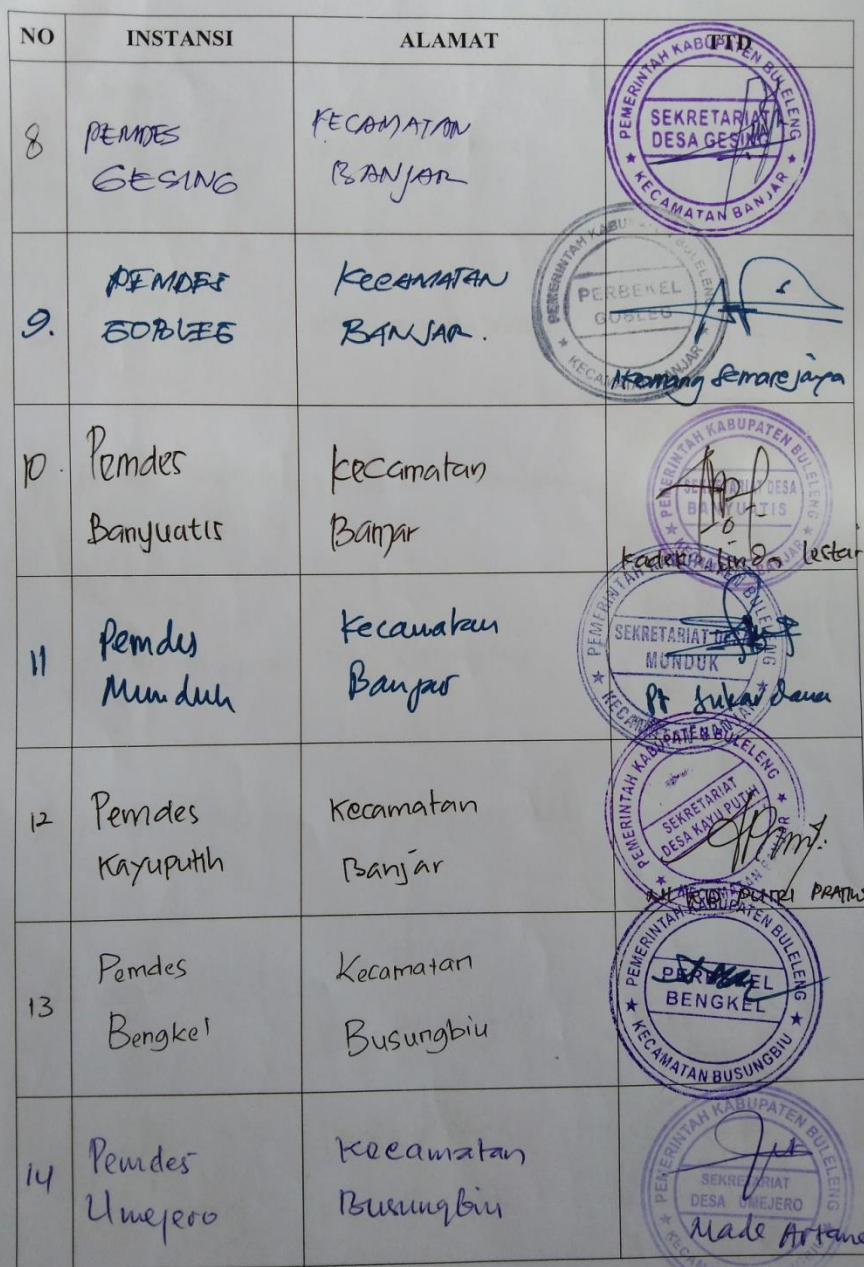 NO INSTANSI ALAMAT TTD
8 PEMDES KECAMATAN
GESING BANJAR
PEMERINTAH KABUPATEN BULELENG
SEKRETARIAT
DESA GESING
KECAMATAN BANJAR
9. PEMDES KECAMATAN
GOBLEG BANJAR.
PEMERINTAH KABUPATEN BULELENG
PERBEKEL
GOBLEG
KECAMATAN BANJAR
Komang Semarejaya
10. Pemdes Kecamatan
Banyuatis Banjar
PEMERINTAH KABUPATEN BULELENG
SEKRETARIAT DESA
BANYUATIS
KECAMATAN BANJAR
Kadek Linda Lestar
11 Pemdes Kecamatan
Munduk Banjar
PEMERINTAH KABUPATEN BULELENG
SEKRETARIAT DESA
MUNDUK
KECAMATAN BANJAR
Pt Sukardana
12 Pemdes Kecamatan
Kayuputih Banjar
PEMERINTAH KABUPATEN BULELENG
SEKRETARIAT
DESA KAYUPUTIH
KECAMATAN BANJAR
PUTRI PRATIW
13 Pemdes Kecamatan
Bengkel Busungbiu
PEMERINTAH KABUPATEN BULELENG
PERBEKEL
BENGKEL
KECAMATAN BUSUNGBIU
14 Pemdes Kecamatan
Umejero Busungbiu
PEMERINTAH KABUPATEN BULELENG
SEKRETARIAT
DESA UMEJERO
Made Artana